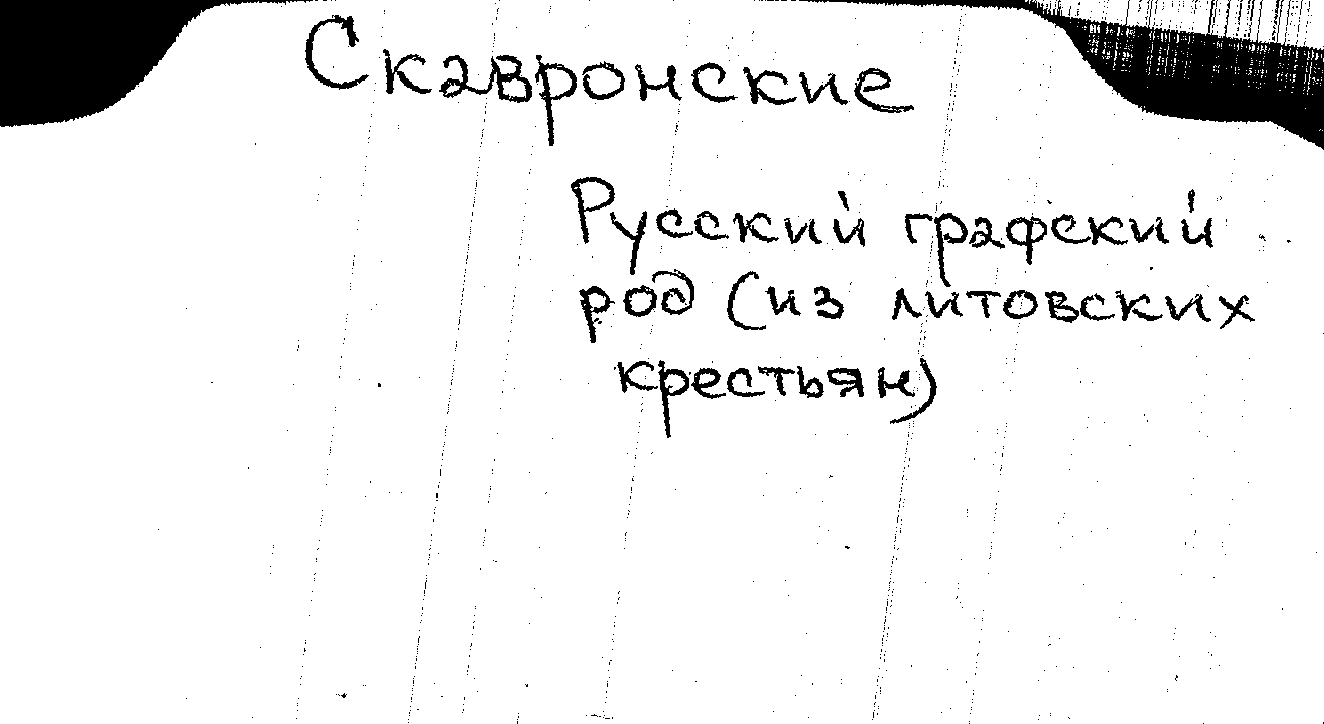 Скавронские
Русский графский
род (из литовских
крестьян)